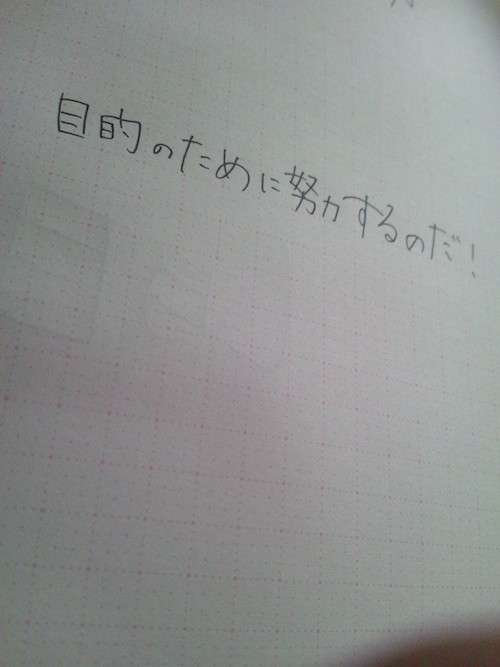 目的のために努力するのだ!